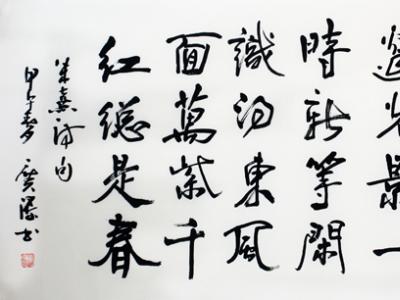 邊光景一
時新等閑
識得東風
面萬紫千
紅總是春
朱熹诗句
甲午 书